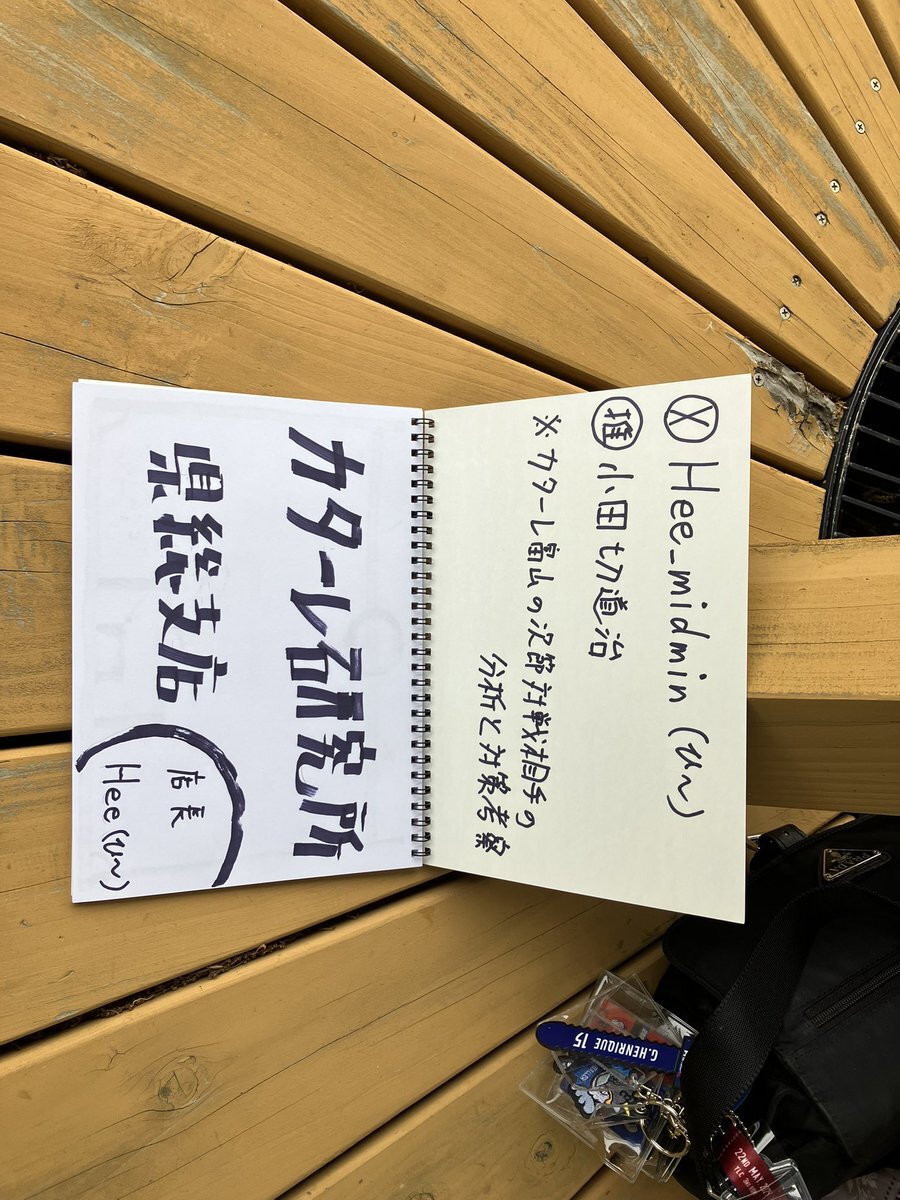 Ⓧ Hee_midmin (ひ〜)
推 小田切道治
※カターレ富山の次節対戦相手の
分析と対策考察
カターレ研究所
県総支店
店長
Hee(ひ〜)
G.HENRIQUE 15
22ND MAY